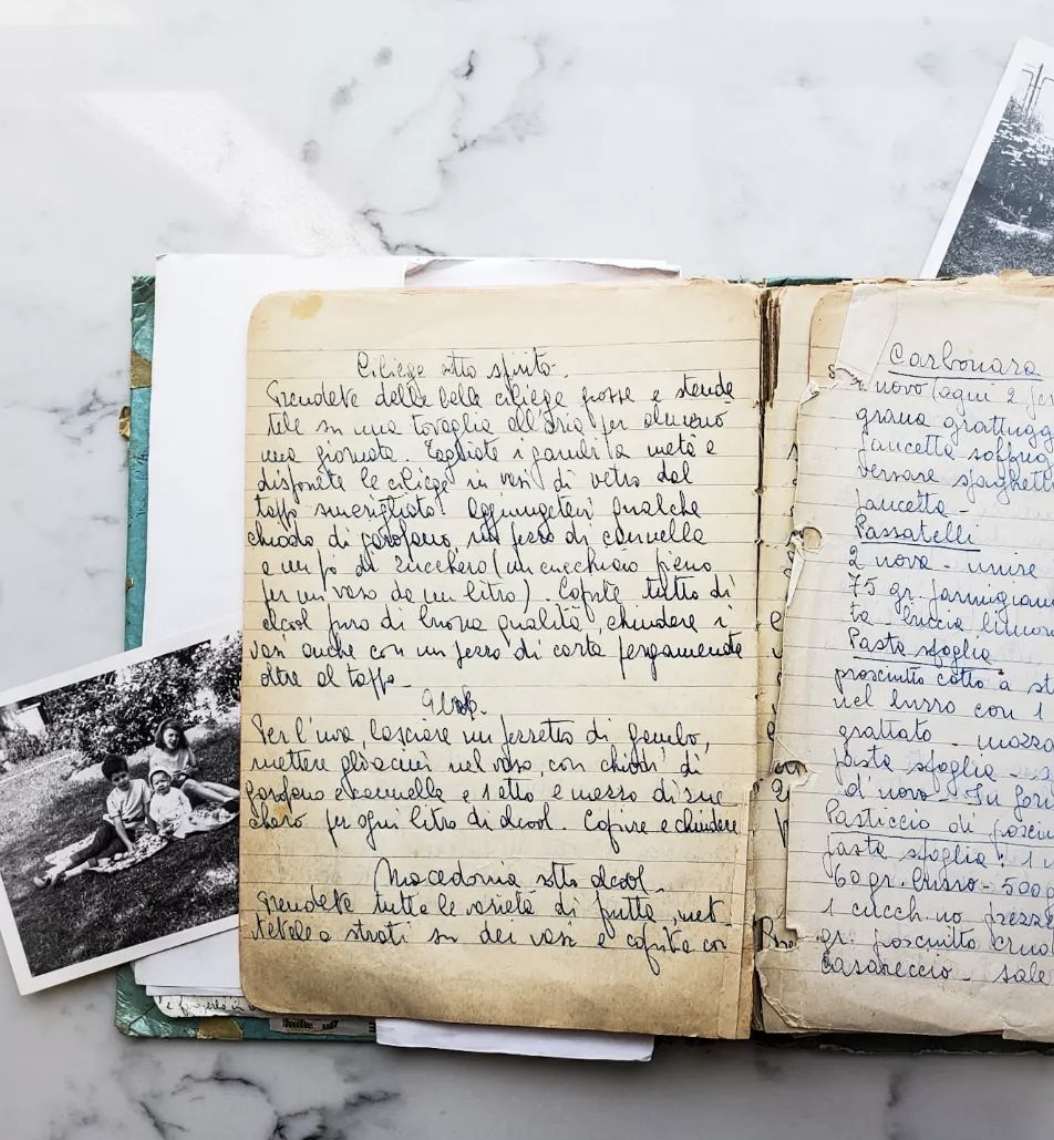 Ciliege sotto spirito.
Prendete delle belle ciliege grosse e stende
tele su una tovaglia all'aria per almeno
una giornata. Tagliate i gambi a metà e
disponete le ciliege in vasi di vetro dal
tappo smerigliato. Aggiungetevi qualche
chiodo di garofano, un pezzo di cannella
e un pò di zucchero (un cucchiaio pieno
per un vaso da un litro). Coprite tutto di
alcool puro di buona qualità, chiudere i
vasi anche con un pezzo di carta pergamenata
oltre al tappo.
Per l'uva, lasciare un pezzetto di gambo,
mettere gli acini nel vaso, con chiodi di
garofano e cannella e 1 etto e mezzo di zuc
chero per ogni litro di alcool. Coprire e chiudere
Macedonia sotto alcool.
Prendete tutte le varietà di frutta, met
tetele a strati su dei vasi e coprite con
Carbonara
novo (ogni 2 per
grana grattugg
pancetta soffrig
versare spaghett
pancetta -
Passatelli
2 nova - unire
75 gr. parmigian
ta buccia limon
Pasta sfoglia
prosciutto cotto a st
nel burro con 1
grattato - mozza
pasta sfoglia -
d'novo - In for
Pasticcio di prosciu
pasta sfoglia: 1
60 gr. burro - 500 g
1 cucch.no prezze
gr. prosciutto crud
casareccio - sale